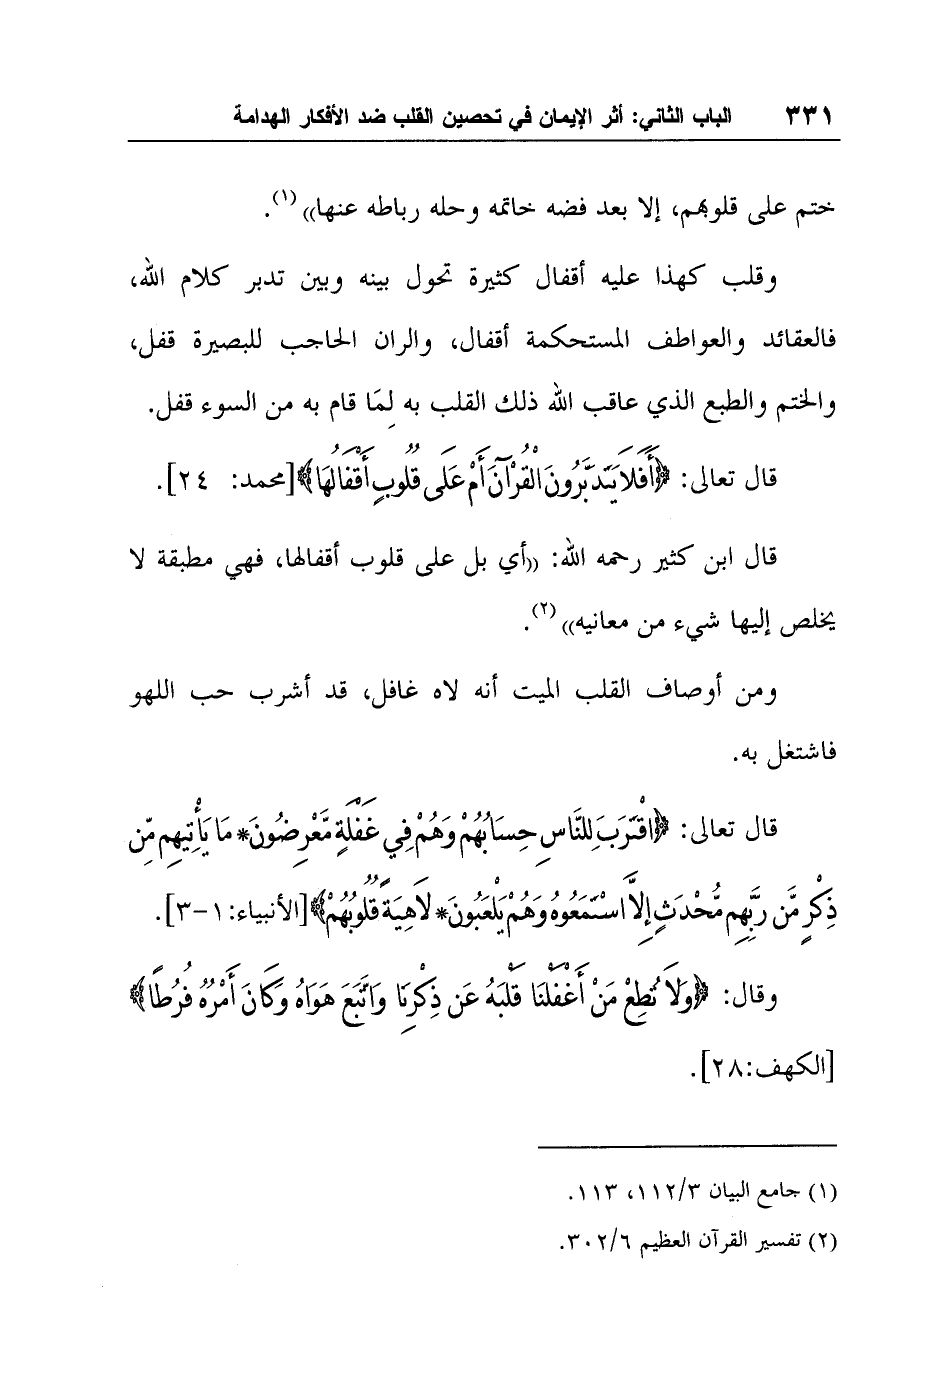 ٣٣١ الباب الثاني: أثر الإيمان في تحصين القلب ضد الأفكار الهدامة
ختم على قلوبهم، إلا بعد فضه خاتمه وحله رباطه عنها)) (١).
وقلب كهذا عليه أقفال كثيرة تحول بينه وبين تدبر كلام الله،
فالعقائد والعواطف المستحكمة أقفال، والران الحاجب للبصيرة قفل،
والختم والطبع الذي عاقب الله ذلك القلب به لِمَا قام به من السوء قفل.
قال تعالى: ﴿أَفَلَا يَتَدَبَّرُونَ الْقُرْآنَ أَمْ عَلَى قُلُوبٍ أَقْفَالُهَا﴾[محمد: ٢٤].
قال ابن كثير رحمه الله: ((أي بل على قلوب أقفالها، فهي مطبقة لا
يخلص إليها شيء من معانيه)) (٢).
ومن أوصاف القلب الميت أنه لاه غافل، قد أشرب حب اللهو
فاشتغل به.
قال تعالى: ﴿اقْتَرَبَ لِلنَّاسِ حِسَابُهُمْ وَهُمْ فِي غَفْلَةٍ مَّعْرِضُونَ* مَا يَأْتِيهِم مِّن
ذِكْرٍ مَّن رَبِّهِم مُّحْدَثٍ إِلاَّ اسْتَمَعُوهُ وَهُمْ يَلْعَبُونَ* لاَهِيَةً قُلُوبُهُمْ﴾[الأنبياء: ١-٣].
وقال: ﴿وَلَا تُطِعْ مَنْ أَغْفَلْنَا قَلْبَهُ عَن ذِكْرِنَا وَاتَّبَعَ هَوَاهُ وَكَانَ أَمْرُهُ فُرُطًا﴾
[الكهف:٢٨].
(١) جامع البيان ١١٢/٣، ١١٣.
(٢) تفسير القرآن العظيم ٣٠٢/٦.